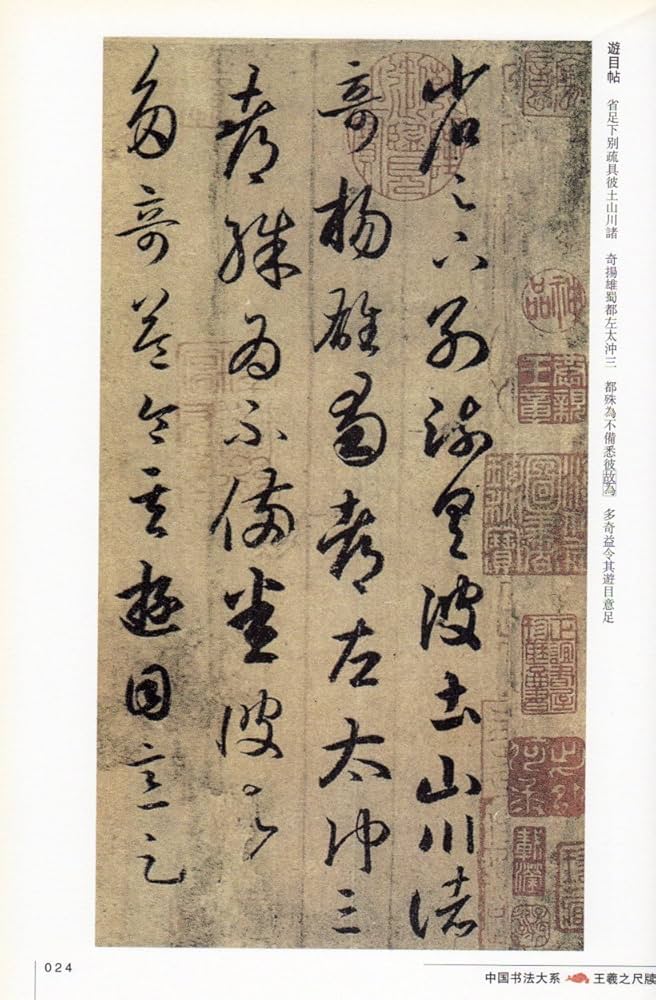 遊目帖 省足下別疏具彼土山川諸 奇揚雄蜀都左太沖三 都殊為不備悉彼故為 多奇益令其遊目意足
神品
省足下別疏具彼土山川諸
奇揚雄蜀都左太沖三
都殊為不備悉彼故為
多奇益令其遊目意足
024
中国书法大系 王羲之尺牍